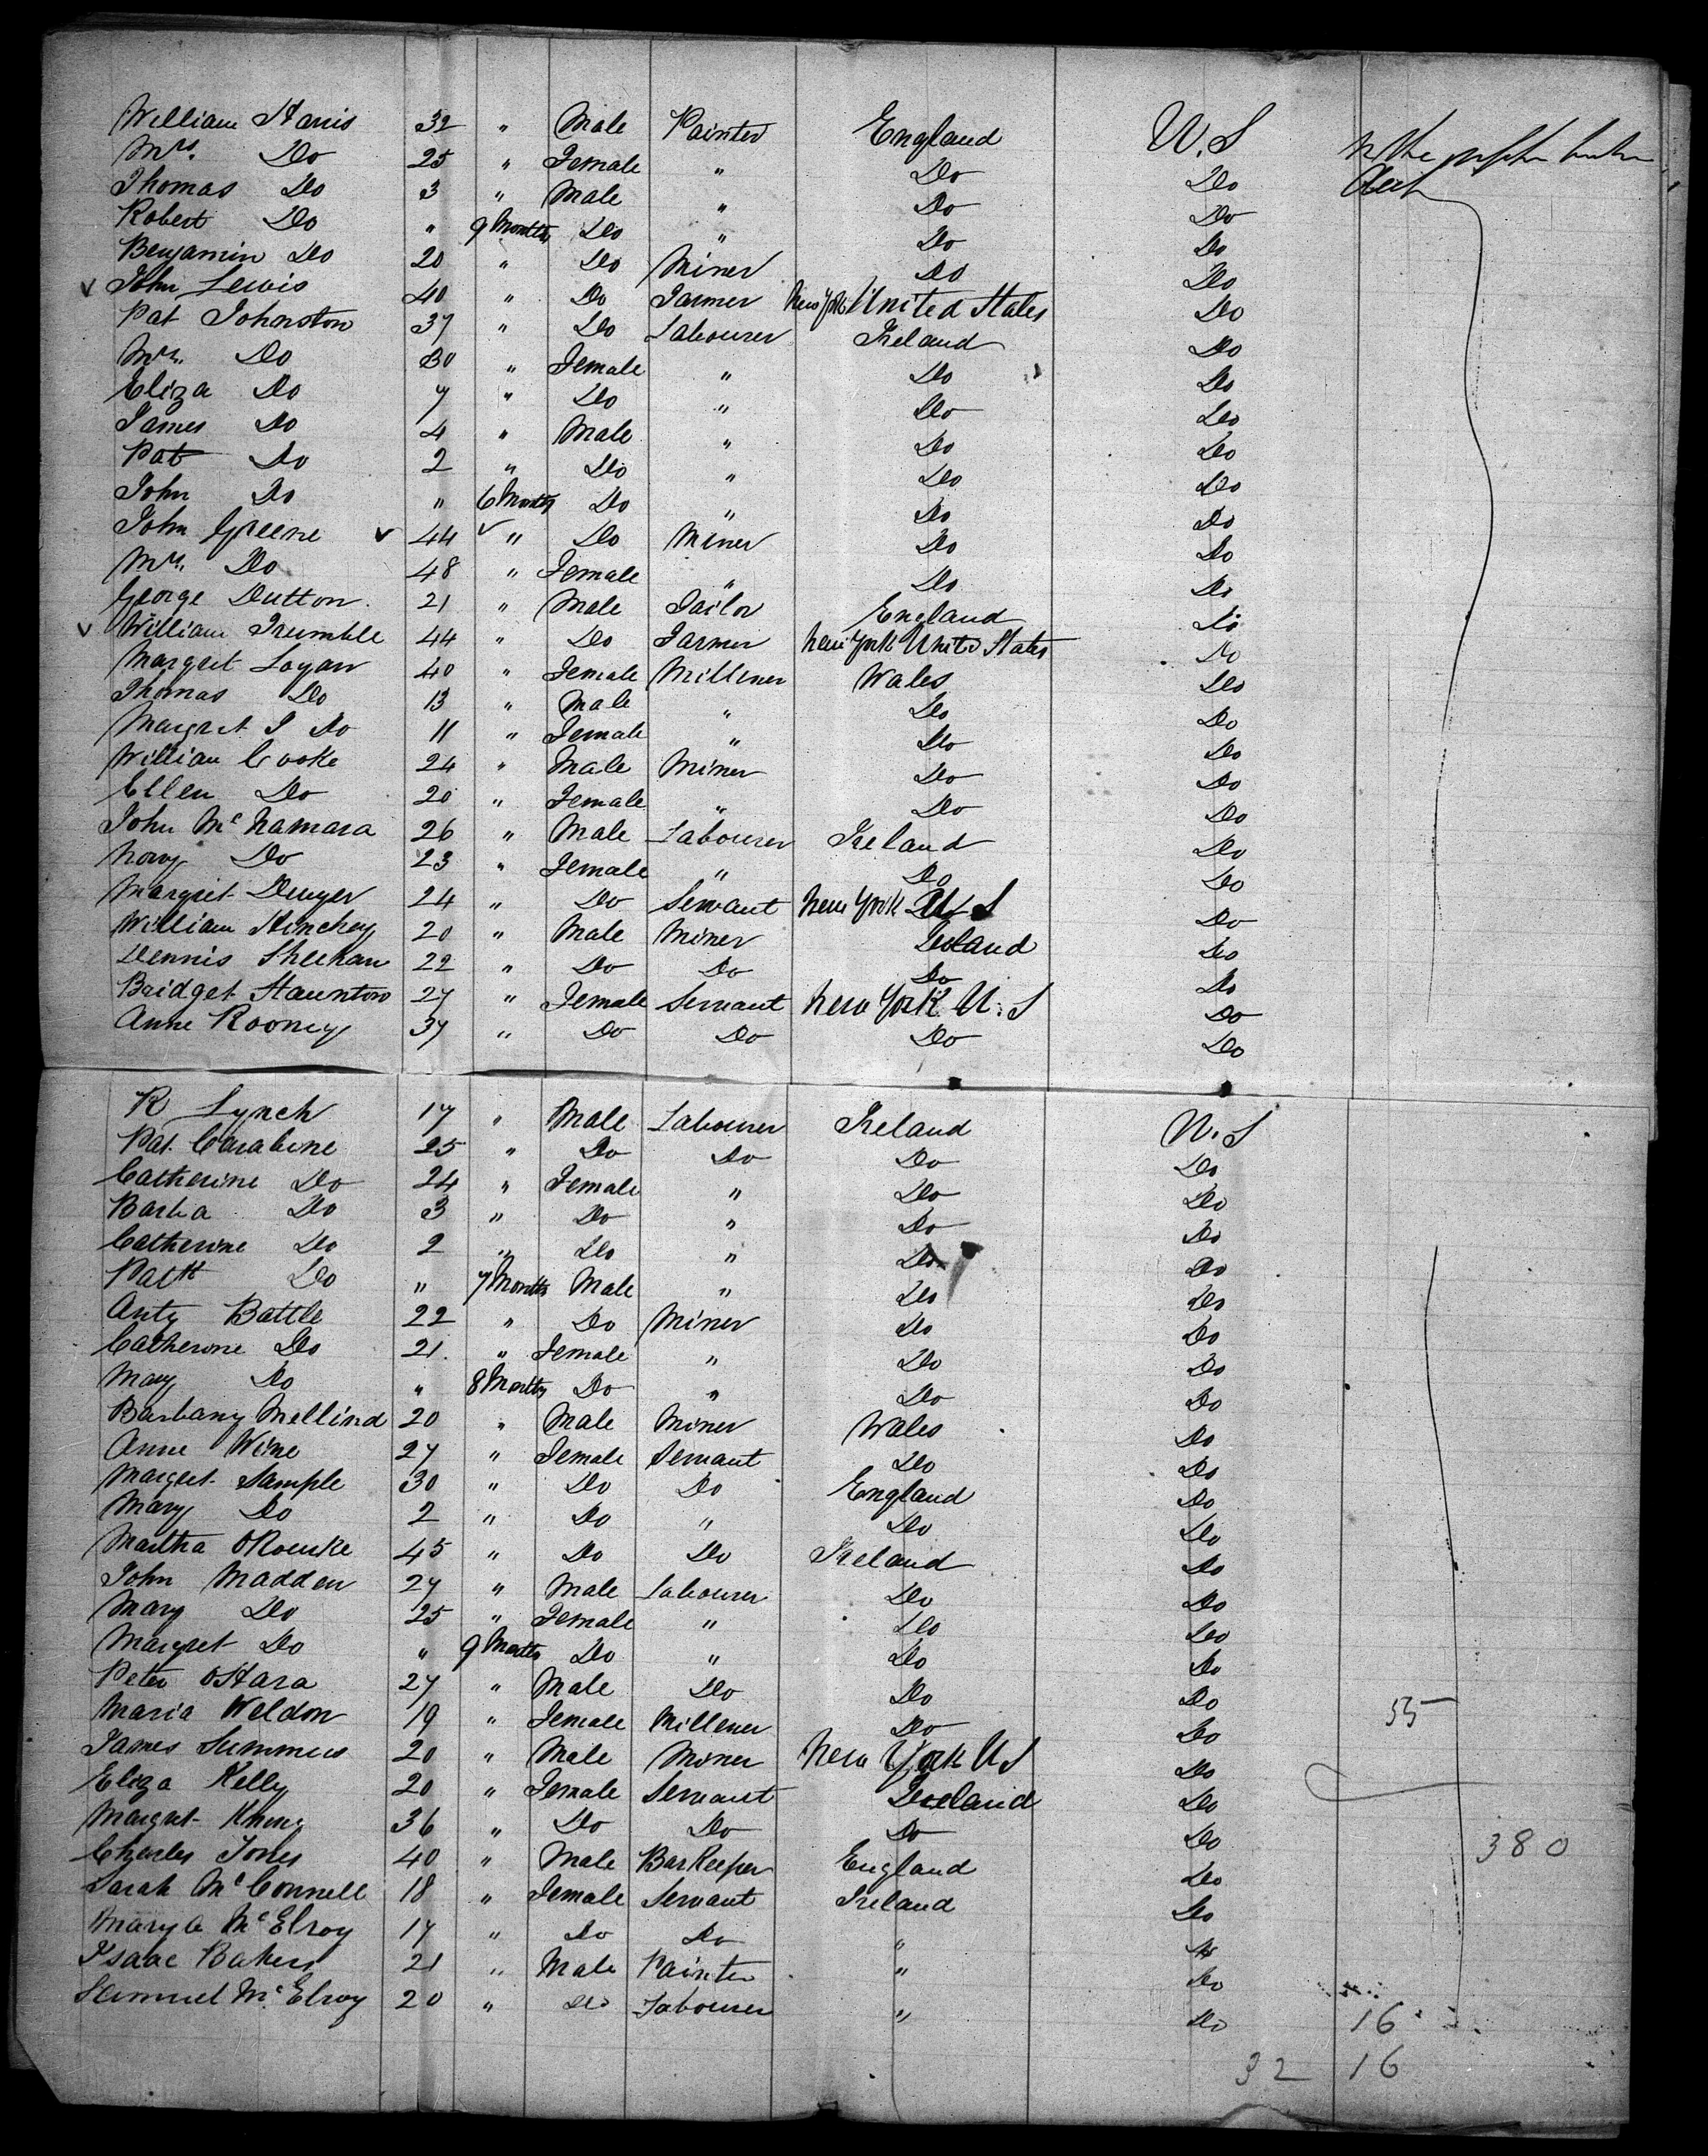 William Harris 32 " Male Painter England U.S
Mrs. Do 25 " Female " Do Do
Thomas Do 3 " Male " Do Do
Robert Do " 9 Months Do " Do Do
Benjamin Do 20 " Do Miner Do Do
John Lewis 40 " Do Farmer New York United States Do
Pat Johnston 37 " Do Labourer Ireland Do
Mrs. Do 30 " Female " Do Do
Eliza Do 7 " Do " Do Do
James Do 4 " Male " Do Do
Pat Do 2 " Do " Do Do
John Do " 6 Months Do " Do Do
John Greene 44 " Do Miner Do Do
Mrs. Do 48 " Female " Do Do
George Dutton 21 " Male Tailor England Do
William Trumble 44 " Do Farmer New York United States Do
Margret Logan 40 " Female Milliner Wales Do
Thomas Do 13 " Male " Do Do
Margret J Do 11 " Female " Do Do
William Cooke 24 " Male Miner Do Do
Ellen Do 20 " Female " Do Do
John McNamara 26 " Male Labourer Ireland Do
Nory Do 23 " Female " Do Do
Margret Dwyer 24 " Do Servant New York U.S Do
William Hinchey 20 " Male Miner Ireland Do
Dennis Sheehan 22 " Do Do Do Do
Bridget Staunton 27 " Female Servant New York U.S Do
Anne Rooney 37 " Do Do Do Do
R Lynch 17 " Male Labourer Ireland U.S
Pat. Carabine 25 " Do Do Do Do
Catherine Do 24 " Female " Do Do
Barba Do 3 " Do " Do Do
Catherine Do 2 " Do " Do Do
Patk Do " 7 Months Male " Do Do
Anty Battle 22 " Do Miner Do Do
Catherine Do 21 " Female " Do Do
Mary Do " 8 Months Do " Do Do
Barbany Mellind 20 " Male Miner Wales Do
Anne Wine 27 " Female Servant Do Do
Margret Sample 30 " Do Do England Do
Mary Do 2 " Do " Do Do
Martha ORourke 45 " Do Do Ireland Do
John Madden 27 " Male Labourer Do Do
Mary Do 25 " Female " Do Do
Margret Do " 9 Months Do " Do Do
Peter OHara 27 " Male Do Do Do
Maria Weldon 19 " Female Millener Do Do 55
James Summers 20 " Male Miner New York US Do
Eliza Kelly 20 " Female Servant Ireland Do
Margret 36 " Do Do Do Do
Charles Jones 40 " Male BarKeeper England Do 380
Sarah McConnell 18 " Female Servant Ireland Do
Mary A McElroy 17 " Do Do " Do
Isaac Bakers 21 " Male Painter " Do
Samuel McElroy 20 " Do Labourer " Do 16
32 16